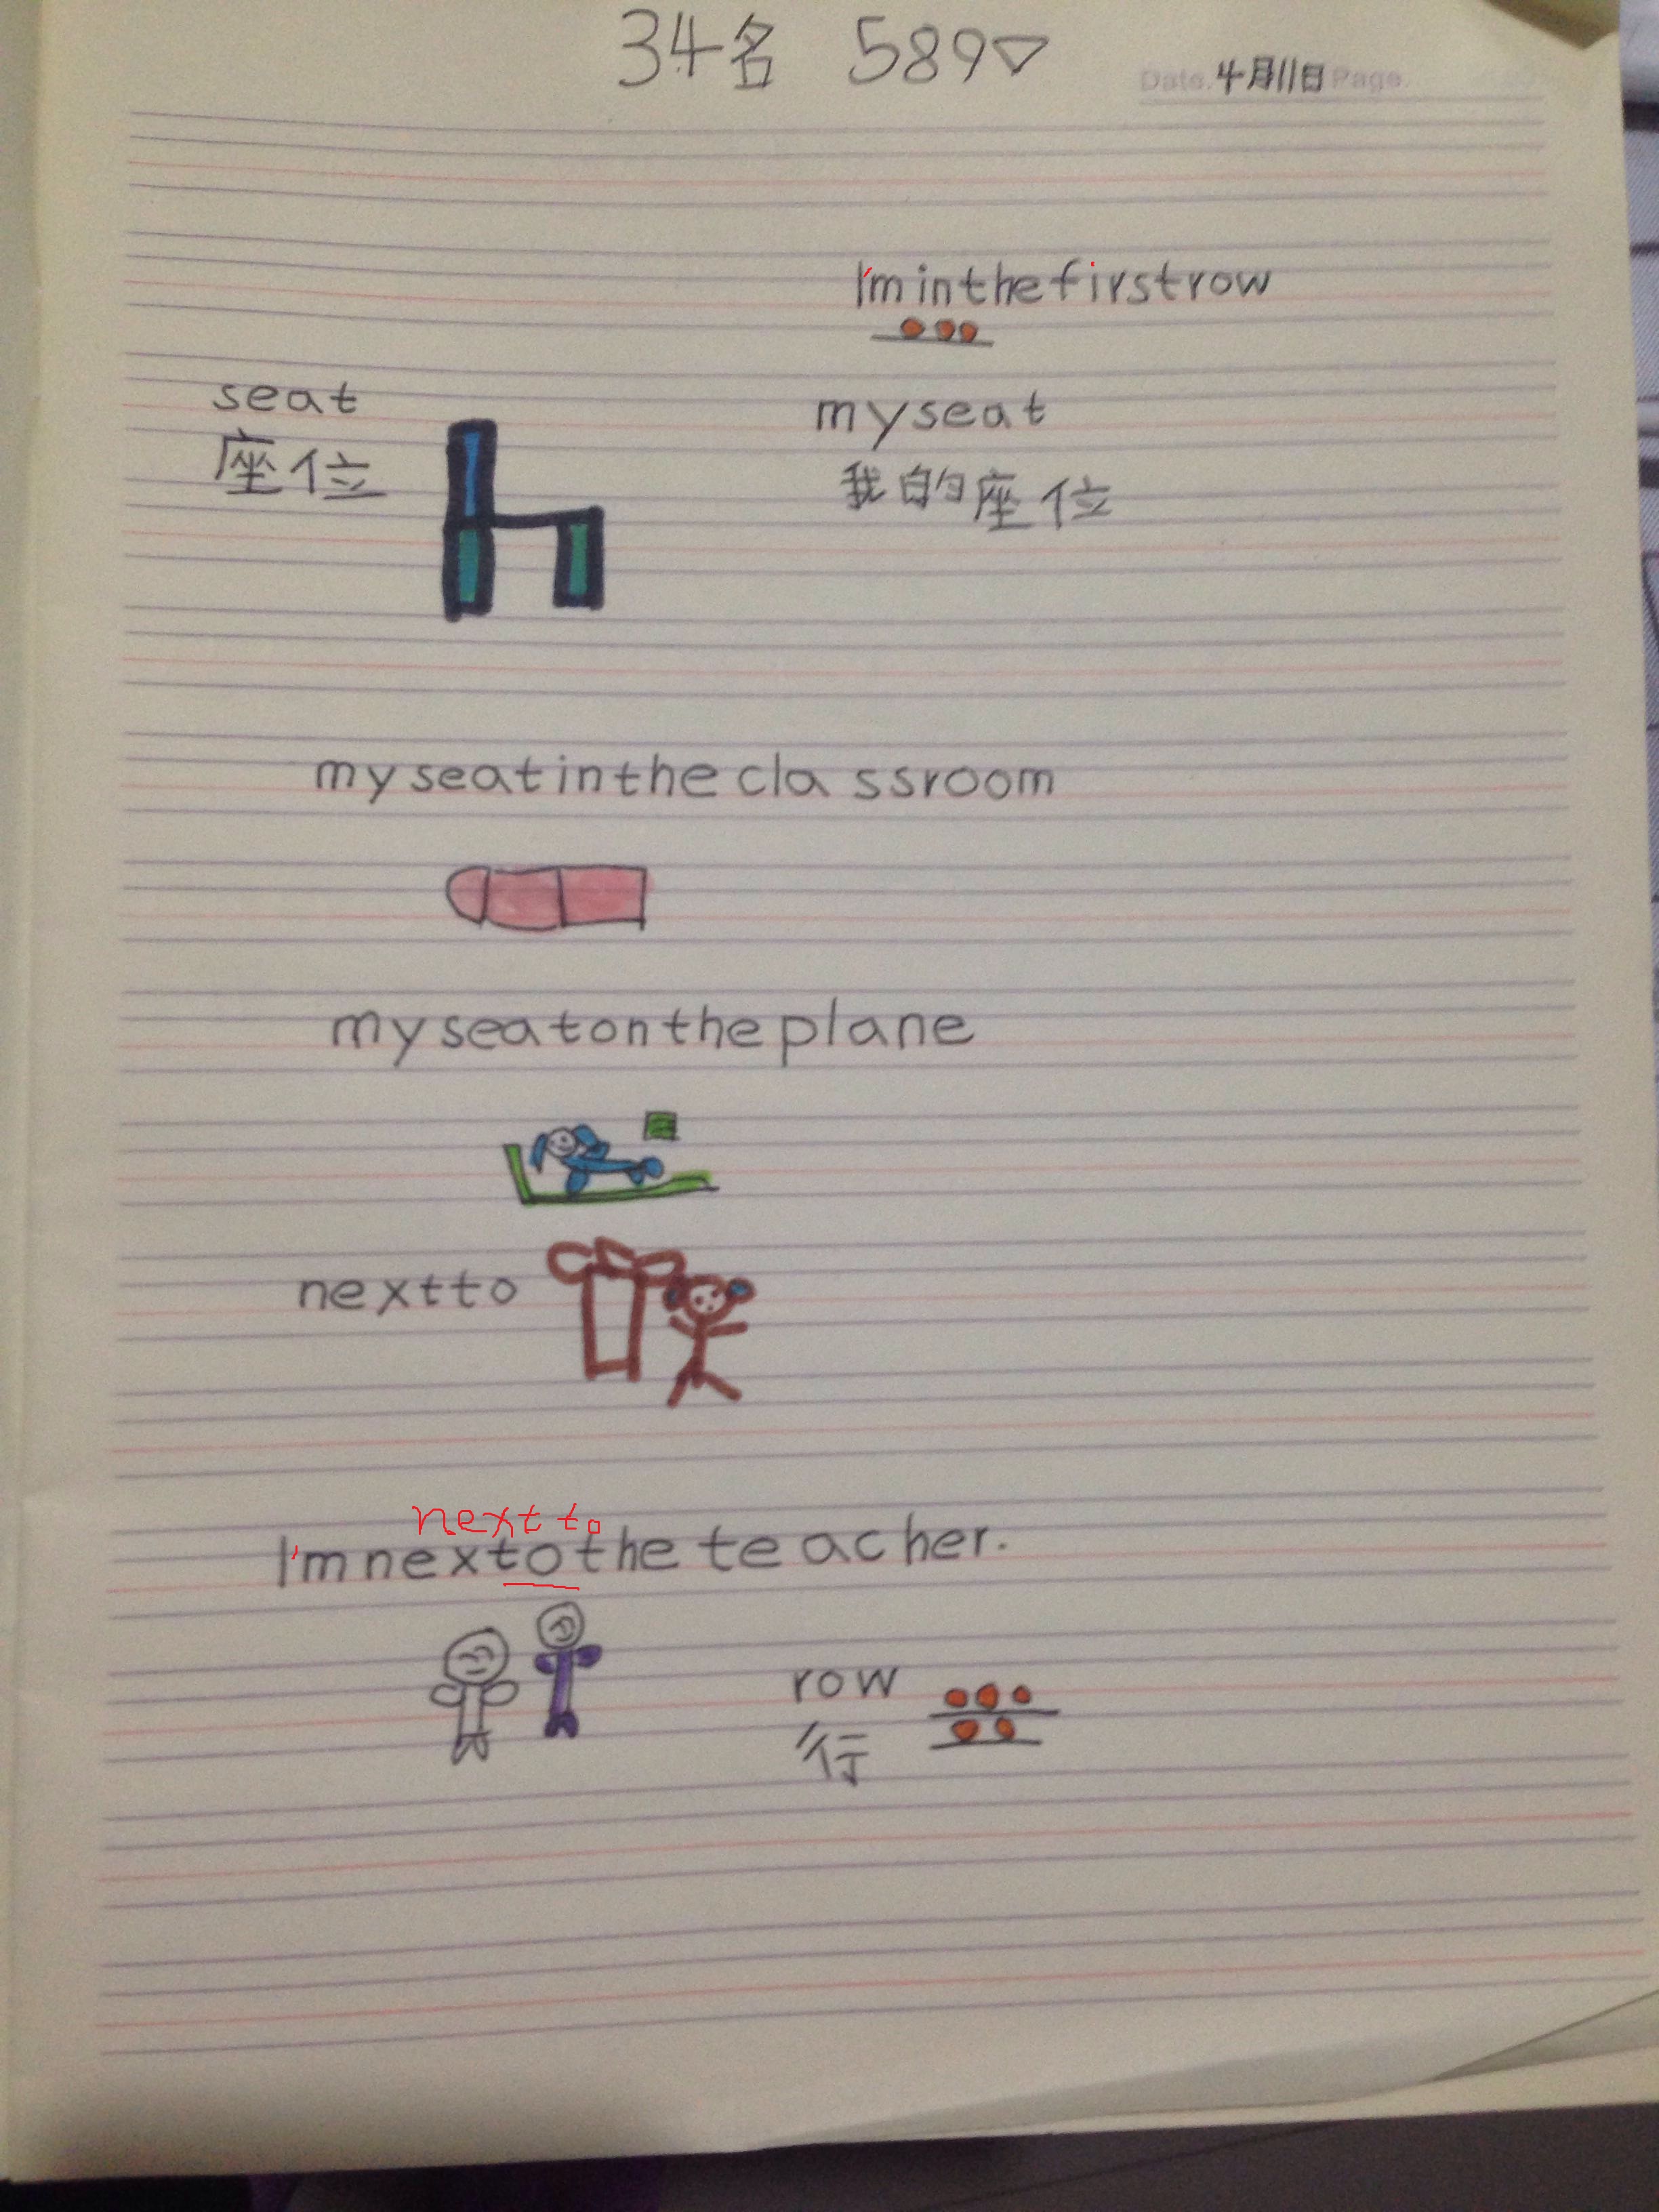 34名 589
Date. 4月11日 Page
I'm in the first row
seat my seat
座位 我的座位
my seat in the classroom
my seat on the plane
next to
next to
I'm nextothe teacher.
row
行